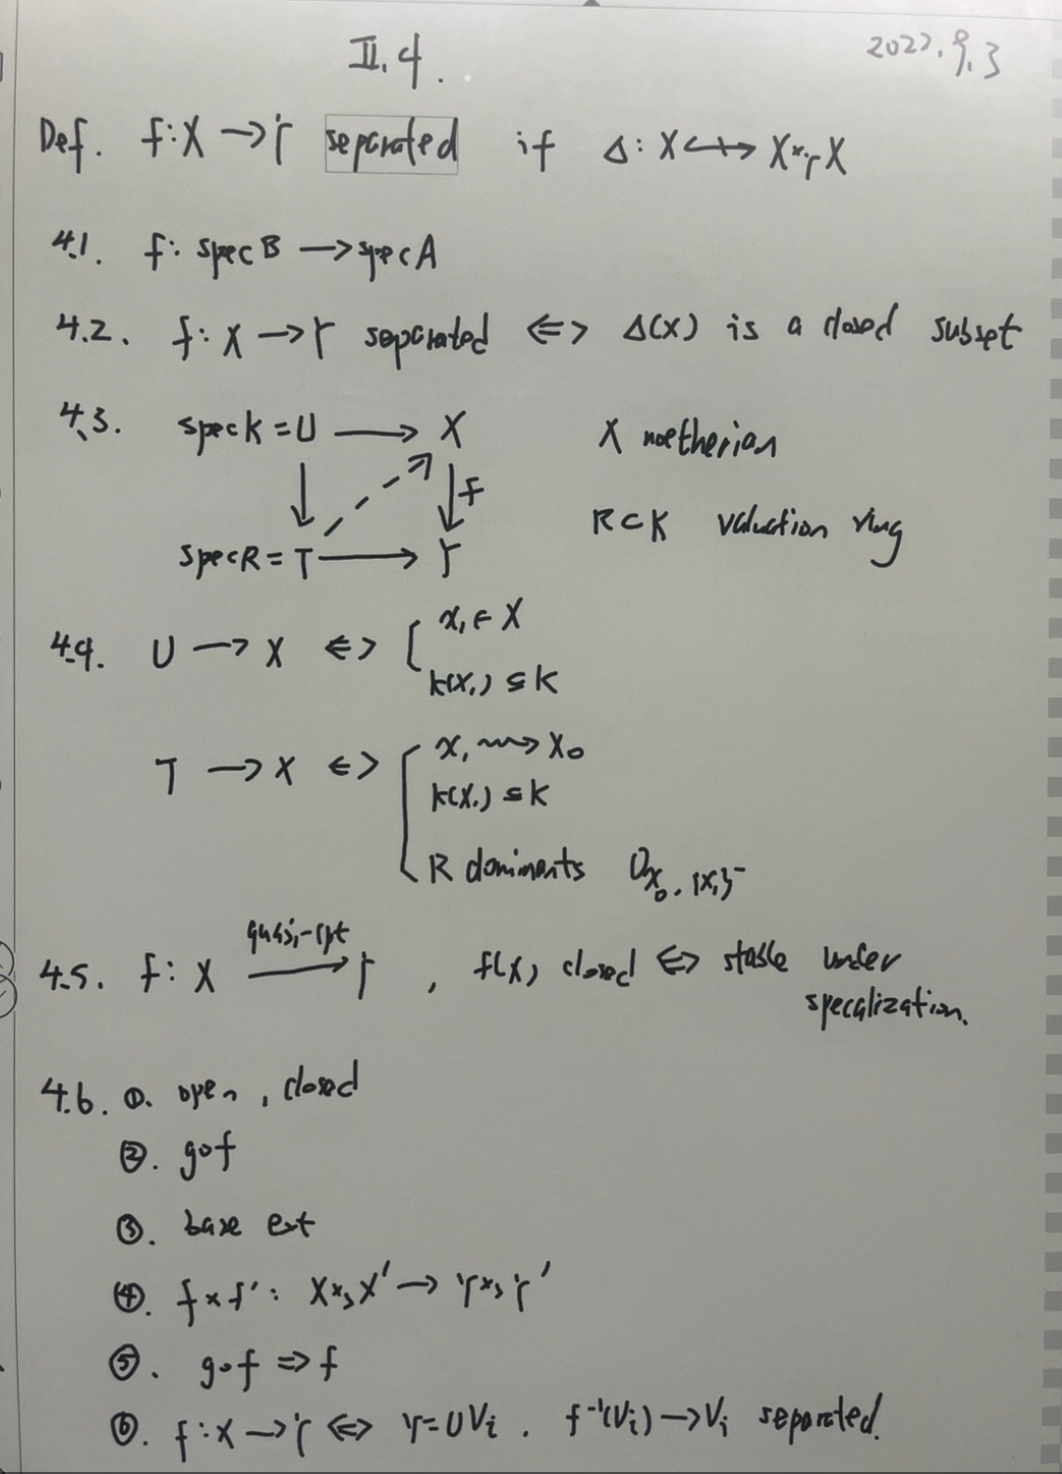 II.4.
2022.9.3
Def. f: X → Y separated if Δ: X ↪ X ×_Y X
4.1. f: spec B → spec A
4.2. f: X → Y separated <=> Δ(X) is a closed subset
4.3. spec K = U → X X noetherian
↓ ↓ f
spec R = T → Y R ⊂ K valuation ring
4.4. U → X <=> { x₁ ∈ X
k(x₁) ⊆ K
T → X <=> { x₁ ⇝ x₀
k(x₁) ⊆ K
R dominants O_{x₀, {x₁}⁻}
4.5. f: X quasi-cpt → Y, f(X) closed <=> stable under
specalization.
4.6. ①. open, closed
②. g∘f
③. base ext
④. f × f': X ×_S X' → Y ×_S Y'
⑤. g∘f => f
⑥. f: X → Y <=> Y = ∪Vᵢ. f⁻¹(Vᵢ) → Vᵢ separated.